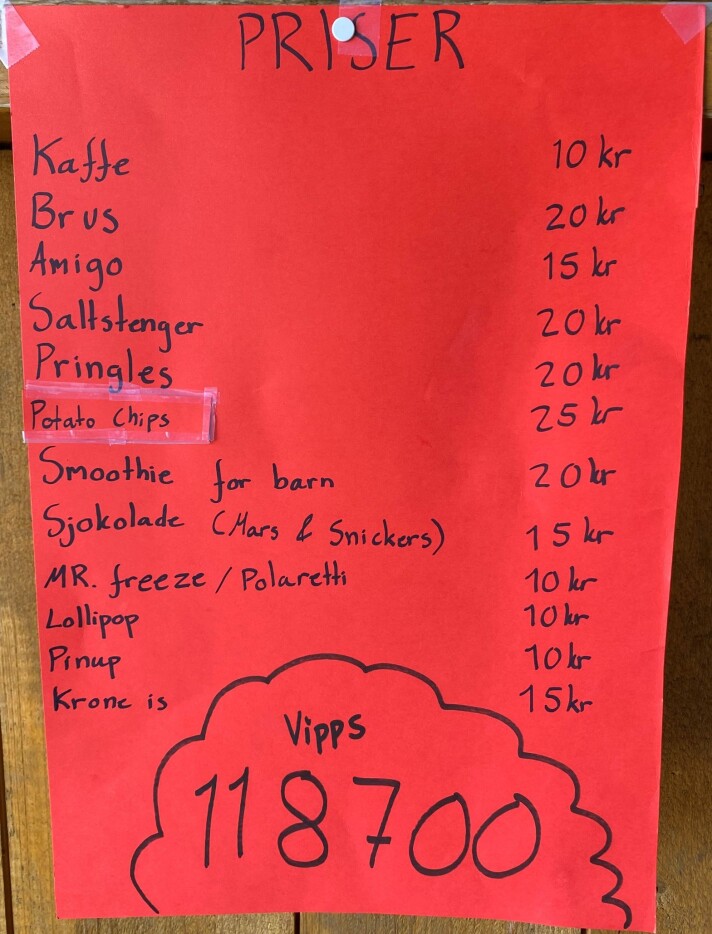 PRISER
Kaffe 10 kr
Brus 20 kr
Amigo 15 kr
Saltstenger 20 kr
Pringles 20 kr
Potato chips 25 kr
Smoothie for barn 20 kr
Sjokolade (Mars & Snickers) 15 kr
MR. freeze / Polaretti 10 kr
Lollipop 10 kr
Pinup 10 kr
Krone is 15 kr
Vipps
118700